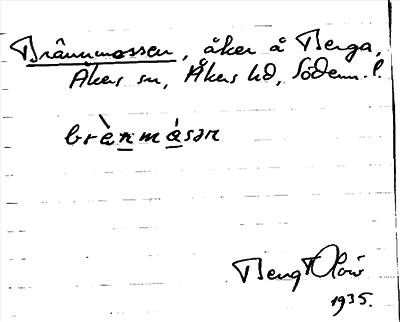 Brännmossen, åker å Berga,
Åkers sn, Åkers hd, Södenn. l.
brènmásən
Bengt Olov
1935.